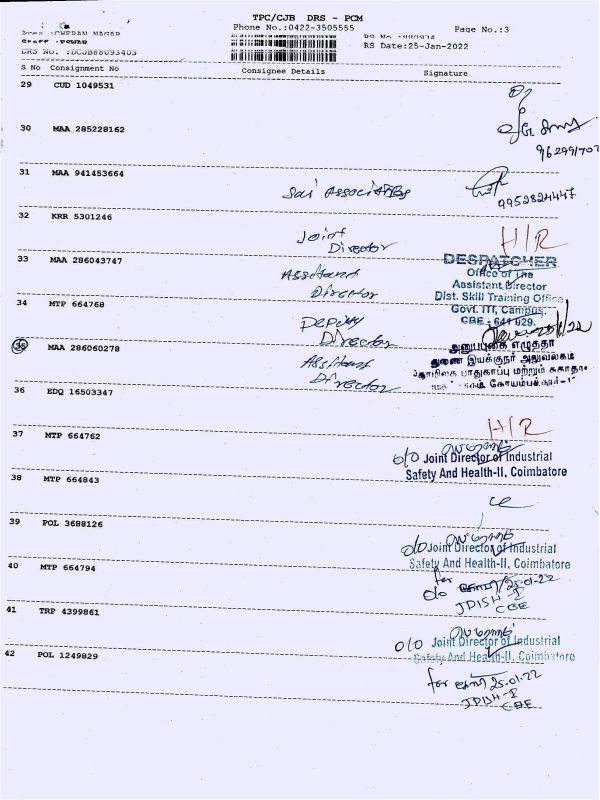 TPC/CJB DRS - PCM
Phone No.:0422-3505555
Page No.:3
DRS No. :DCJB88093403
RS Date:25-Jan-2022
S No Consignment No
Consignee Details
Signature
29 CUD 1049531
30 MAA 285228162
31 MAA 941453664
Sai Associates
9952824447
32 KRR 5301246
Joint
Director
H/R
33 MAA 286043747
Assistant
Director
DESPATCHER
Office of the
Assistant Director
Dist. Skill Training Office
Govt. ITI, Campus,
CBE - 641 029.
34 MTP 664768
Deputy
Director
35 MAA 286060278
Assistant
Director
துணை இயக்குநர் அலுவலகம்
பாதுகாப்பு மற்றும்
36 EDQ 16503347
H/R
37 MTP 664762
o/o Joint Director of Industrial
Safety And Health-II, Coimbatore
38 MTP 664843
39 POL 3688126
o/o Joint Director of Industrial
Safety And Health-II, Coimbatore
40 MTP 664794
for
25-01-22
JDISH-I
CBE
41 TRP 4399861
o/o Joint Director of Industrial
Safety And Health-II, Coimbatore
42 POL 1249829
for
25-01-22
JDISH-I
CBE